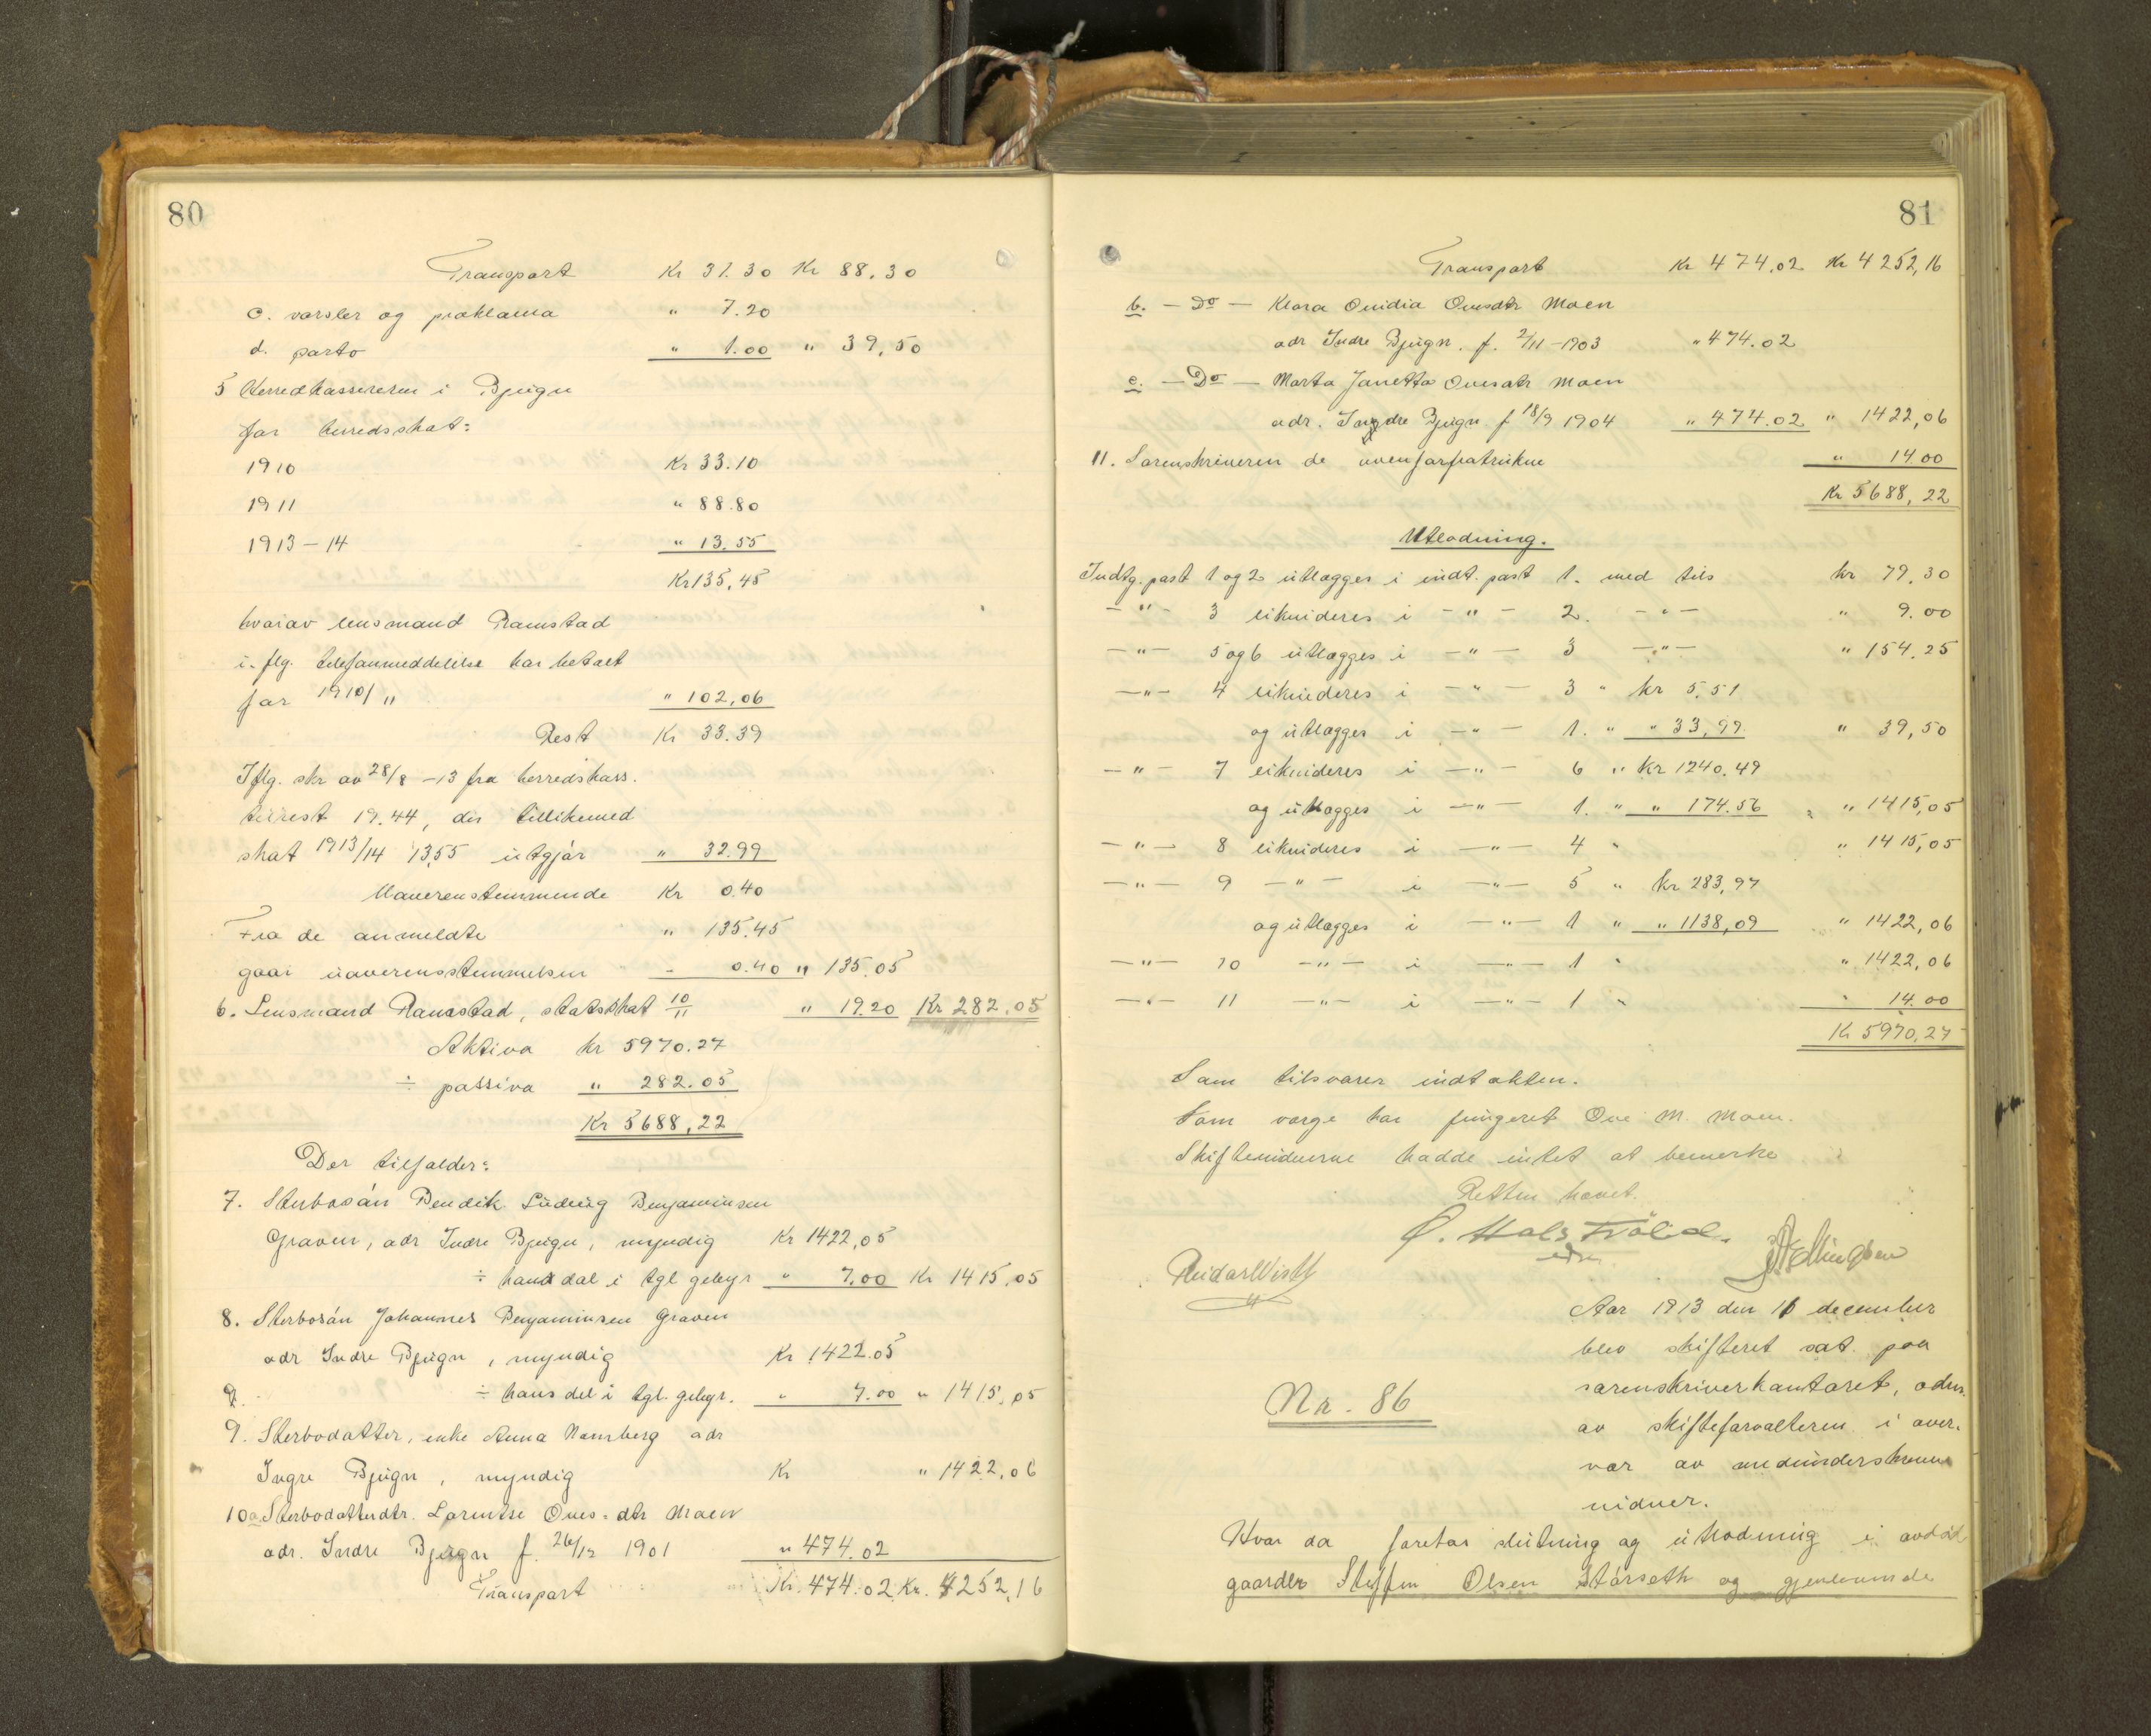 80
Transport Kr 31.30 Kr 88.30
c. varsler og proklama " 7.20
d. porto " 1.00 " 39,50
5 Herredskassereren i Bjugn
for herredsskat:
1910 Kr 33.10
1911 " 88.80
1913-14 " 13.55
Kr 135,45
hvorav lensmand Ramstad
i. flg. telefonmeddelelse har betalt
for 1910/11 " 102,06
Rest Kr 33.39
Iflg. skr av 28/8 -13 fra herredskass.
tilrest 19.44, der tillikemed
skat 1913/14 13,55 utgjör " 32.99
Uoverenstemmende Kr 0.40
Fra de anmeldte " 135.45
gaar uoverensstemmelsen - 0.40 " 135.05
6. Lensmand Ramstad, statsskat 10/11 " 19.20 Kr 282.05
Aktiva Kr 5970.27
÷ passiva " 282.05
Kr 5688,22
Der tilfalder:
7. Sterbosön Bendik Ludvig Benjaminsen
Graven, adr Indre Bjugn, myndig Kr 1422,05
÷ hans del i tgl gebyr " 7.00 Kr 1415,05
8. Sterbosön Johannes Benjaminsen Graven
adr Indre Bjugn, myndig Kr 1422.05
9. ÷ hans del i tgl. gebyr. " 7.00 " 1415,05
9. Sterbodatter, enke Anna adr
Ingre Bjugn, myndig Kr " 1422,06
10 a. Sterbodatterdtr. Lorentse Oves-dtr Moen
adr. Indre Bjugn f. 26/12 1901 " 474.02
Transport Kr. 474.02 Kr. 4252,16
81
Transport Kr 474,02 Kr 4252,16
b. - Do - Klara Ovidia Ovesdtr Moen
adr Indre Bjugn. f. 2/11-1903 " 474.02
c. - Do - Marta Janetta Ovesdtr Moen
adr. Indre Bjugn f 18/9 1904 " 474.02 " 1422,06
11. Sorenskriveren de ovenforfratrukne " 14.00
Kr 5688,22
Utlodning.
Indtg. post 1 og 2 utlægges i indt. post 1. med tils kr 79.30
- " - 3 likvideres i - " - 2. - " - " 9.00
- " - 5 og 6 utlægges i - " - 3 - " - " 154.25
- " - 4 likvideres i - " - 3 " kr 5.51
og utlægges i - " - 1. " " 33,99 " 39,50
- " - 7 likvideres i - " - 6 " Kr 1240.49
og utlægges i - " - 1. " " 174.56 " 1415,05
- " - 8 likvideres i - " - 4 " " 1415,05
- " - 9 - " - i - " - 5 " Kr 283,97
og utlægges i - " - 1 " " 1138,09 " 1422,06
- " - 10 - " - i - " - 1 " " 1422,06
- " - 11 - " - i - " - 1 " " 14.00
Kr 5970,27
Som tilsvarer indtækten.
Som verge har fungeret Ove M. Moen.
Skiftevidnerne hadde intet at bemerke
Retten hævet.
Ø. Hals
edsv.
Aar 1913 den 16 december
blev skifteret sat paa
sorenskriverkontoret, adm.
av skifteforvalteren i over-
vær av medunderskrevne
vidner.
Nr. 86
Hvor da foretas slutning og utlodning i avdöd
gaardbr Steffen Olsen Störseth og gjenlevende